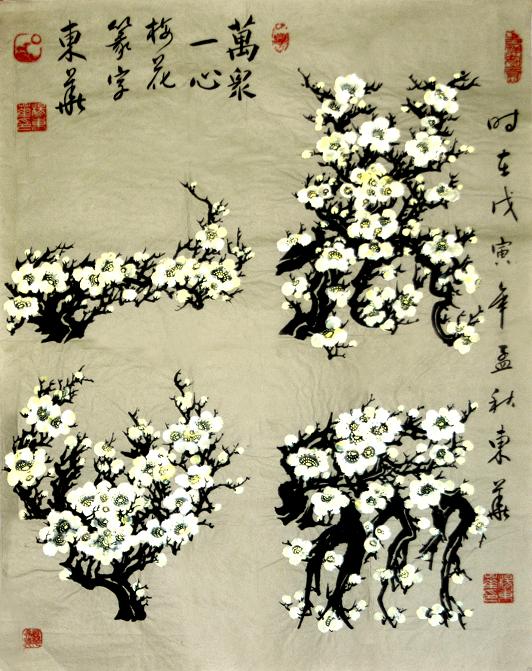 时在戊寅年孟秋東華
萬眾
一心
梅花
篆字
東華